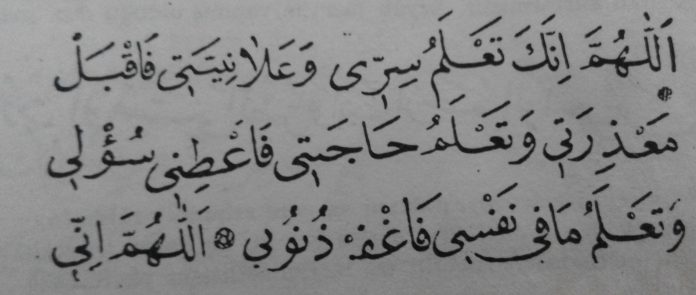 اَللّٰهُمَّ اِنَّكَ تَعْلَمُ سِرِّى وَعَلَانِيَتِي فَاقْبَلْ
مَعْذِرَتِي وَتَعْلَمُ حَاجَتِي فَاَعْطِنِي سُؤْلِي
وَتَعْلَمُ مَا فِي نَفْسِي فَاغْفِرْ ذُنُوْبِي ۞ اَللّٰهُمَّ اِنِّي